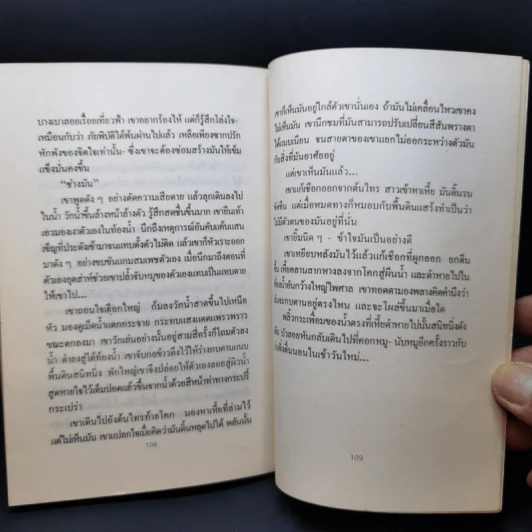 บางเบาลอยเรื่อยเที่ยวฟ้า เขาอยากร้องไห้ แต่ก็รู้สึกโล่งใจ-
เหมือนกับว่า ภัยพิบัติได้พ้นผ่านไปแล้ว เหลือเพียงซากปรัก
หักพังของจิตใจเท่านั้น- ซึ่งเขาจะต้องซ่อมสร้างมันให้เข้ม
แข็งมั่นคงขึ้น
"ช่างมัน"
เขาพูดดัง ๆ อย่างตัดความเสียดาย แล้วลุกเดินลงไป
ในน้ำ วักน้ำขึ้นล้างหน้าล้างตัว รู้สึกสดชื่นขึ้นมาก เขายืนเท้า
เอวมองเงาตัวเองในท้องน้ำ นึกถึงเหตุการณ์อันคับเค้นแสน
เข็ญที่ประดังเข้ามาจนแทบตั้งตัวไม่ติด แล้วเขาก็หัวเราะออก
มาดัง ๆ อย่างขบขันแกมสมเพชตัวเอง เมื่อนึกมาถึงตอนที่
ตัวเองอุตส่าห์ช่วยเขาปล้ำจับหมูของตัวเองแทบเป็นแทบตาย
ให้เขาไป...
เขาถอนใจเฮือกใหญ่ ก้มลงวักน้ำสาดขึ้นไปเหนือ
หัว มองดูเม็ดน้ำแตกกระจาย กระทบแสงแดดแพรวพราว
ขณะตกลงมา เขาวักเล่นอย่างนั้นอยู่สามสี่ครั้งก็โถมตัวลง
น้ำ ดำลงสู่ใต้ท้องน้ำ เขาจับก่อข้าวดึงไว้ให้ร่างกบดานแนบ
พื้นดินสนิทนิ่ง พักใหญ่เขาจึงปล่อยให้ตัวเองลอยสู่ผิวน้ำ
สูดหายใจไว้เต็มปอดแล้วขึ้นจากน้ำด้วยสีหน้าท่าทางกระปรี้
กระเปร่า
เขาเดินไปยังต้นไทรท้ายโคก มองหาเหี้ยที่ล่ามไว้
แต่ไม่เห็นมัน เขาแปลกใจเมื่อคิดว่ามันดิ้นหลุดไปได้ พลันนั้น
108
เขาก็เห็นมันอยู่ใกล้ตัวเขานั่นเอง ถ้ามันไม่เคลื่อนไหวเขาคง
ไม่เห็นมัน เขานึกชมที่มันสามารถปรับเปลี่ยนสีสันพรางตา
ได้แนบเนียน จนสายตาของเขาแยกไม่ออกระหว่างตัวมัน
กับสิ่งที่มันอาศัยอยู่
แต่เขาเห็นมันแล้ว...
เขาแก้เชือกออกจากต้นไทร สาวเข้าหาเหี้ย มันดิ้นรน
ขัดขืน แต่เมื่อหมดทางก็หมอบกับพื้นดินแสร้งทำเป็นว่า
ไม่มีตัวตนของมันอยู่ที่นั่น
เขายิ้มนิด ๆ - เข้าใจมันเป็นอย่างดี
เขาเหยียบหลังมันไว้ แล้วแก้เชือกที่ผูกออก ยกตีน
ขึ้น เหี้ยคลานลากหางลงจากโคกสู่ผืนน้ำ และดำหายไปใน
ท้องน้ำอันกว้างใหญ่ไพศาล เขาทอดตามองพลางคิดคำนึงว่า
กบดานอยู่ตรงไหน และจะโผล่ขึ้นมาเมื่อใด
พลิ้วกระเพื่อมของน้ำตรงที่เหี้ยดำหายไปนั้นสนิทนิ่งดัง
บัวลอยหันกลับเดินไปที่คอกหมู- นับหมูอีกครั้งราวกับ
ตื่นนอนในเช้าวันใหม่...
109